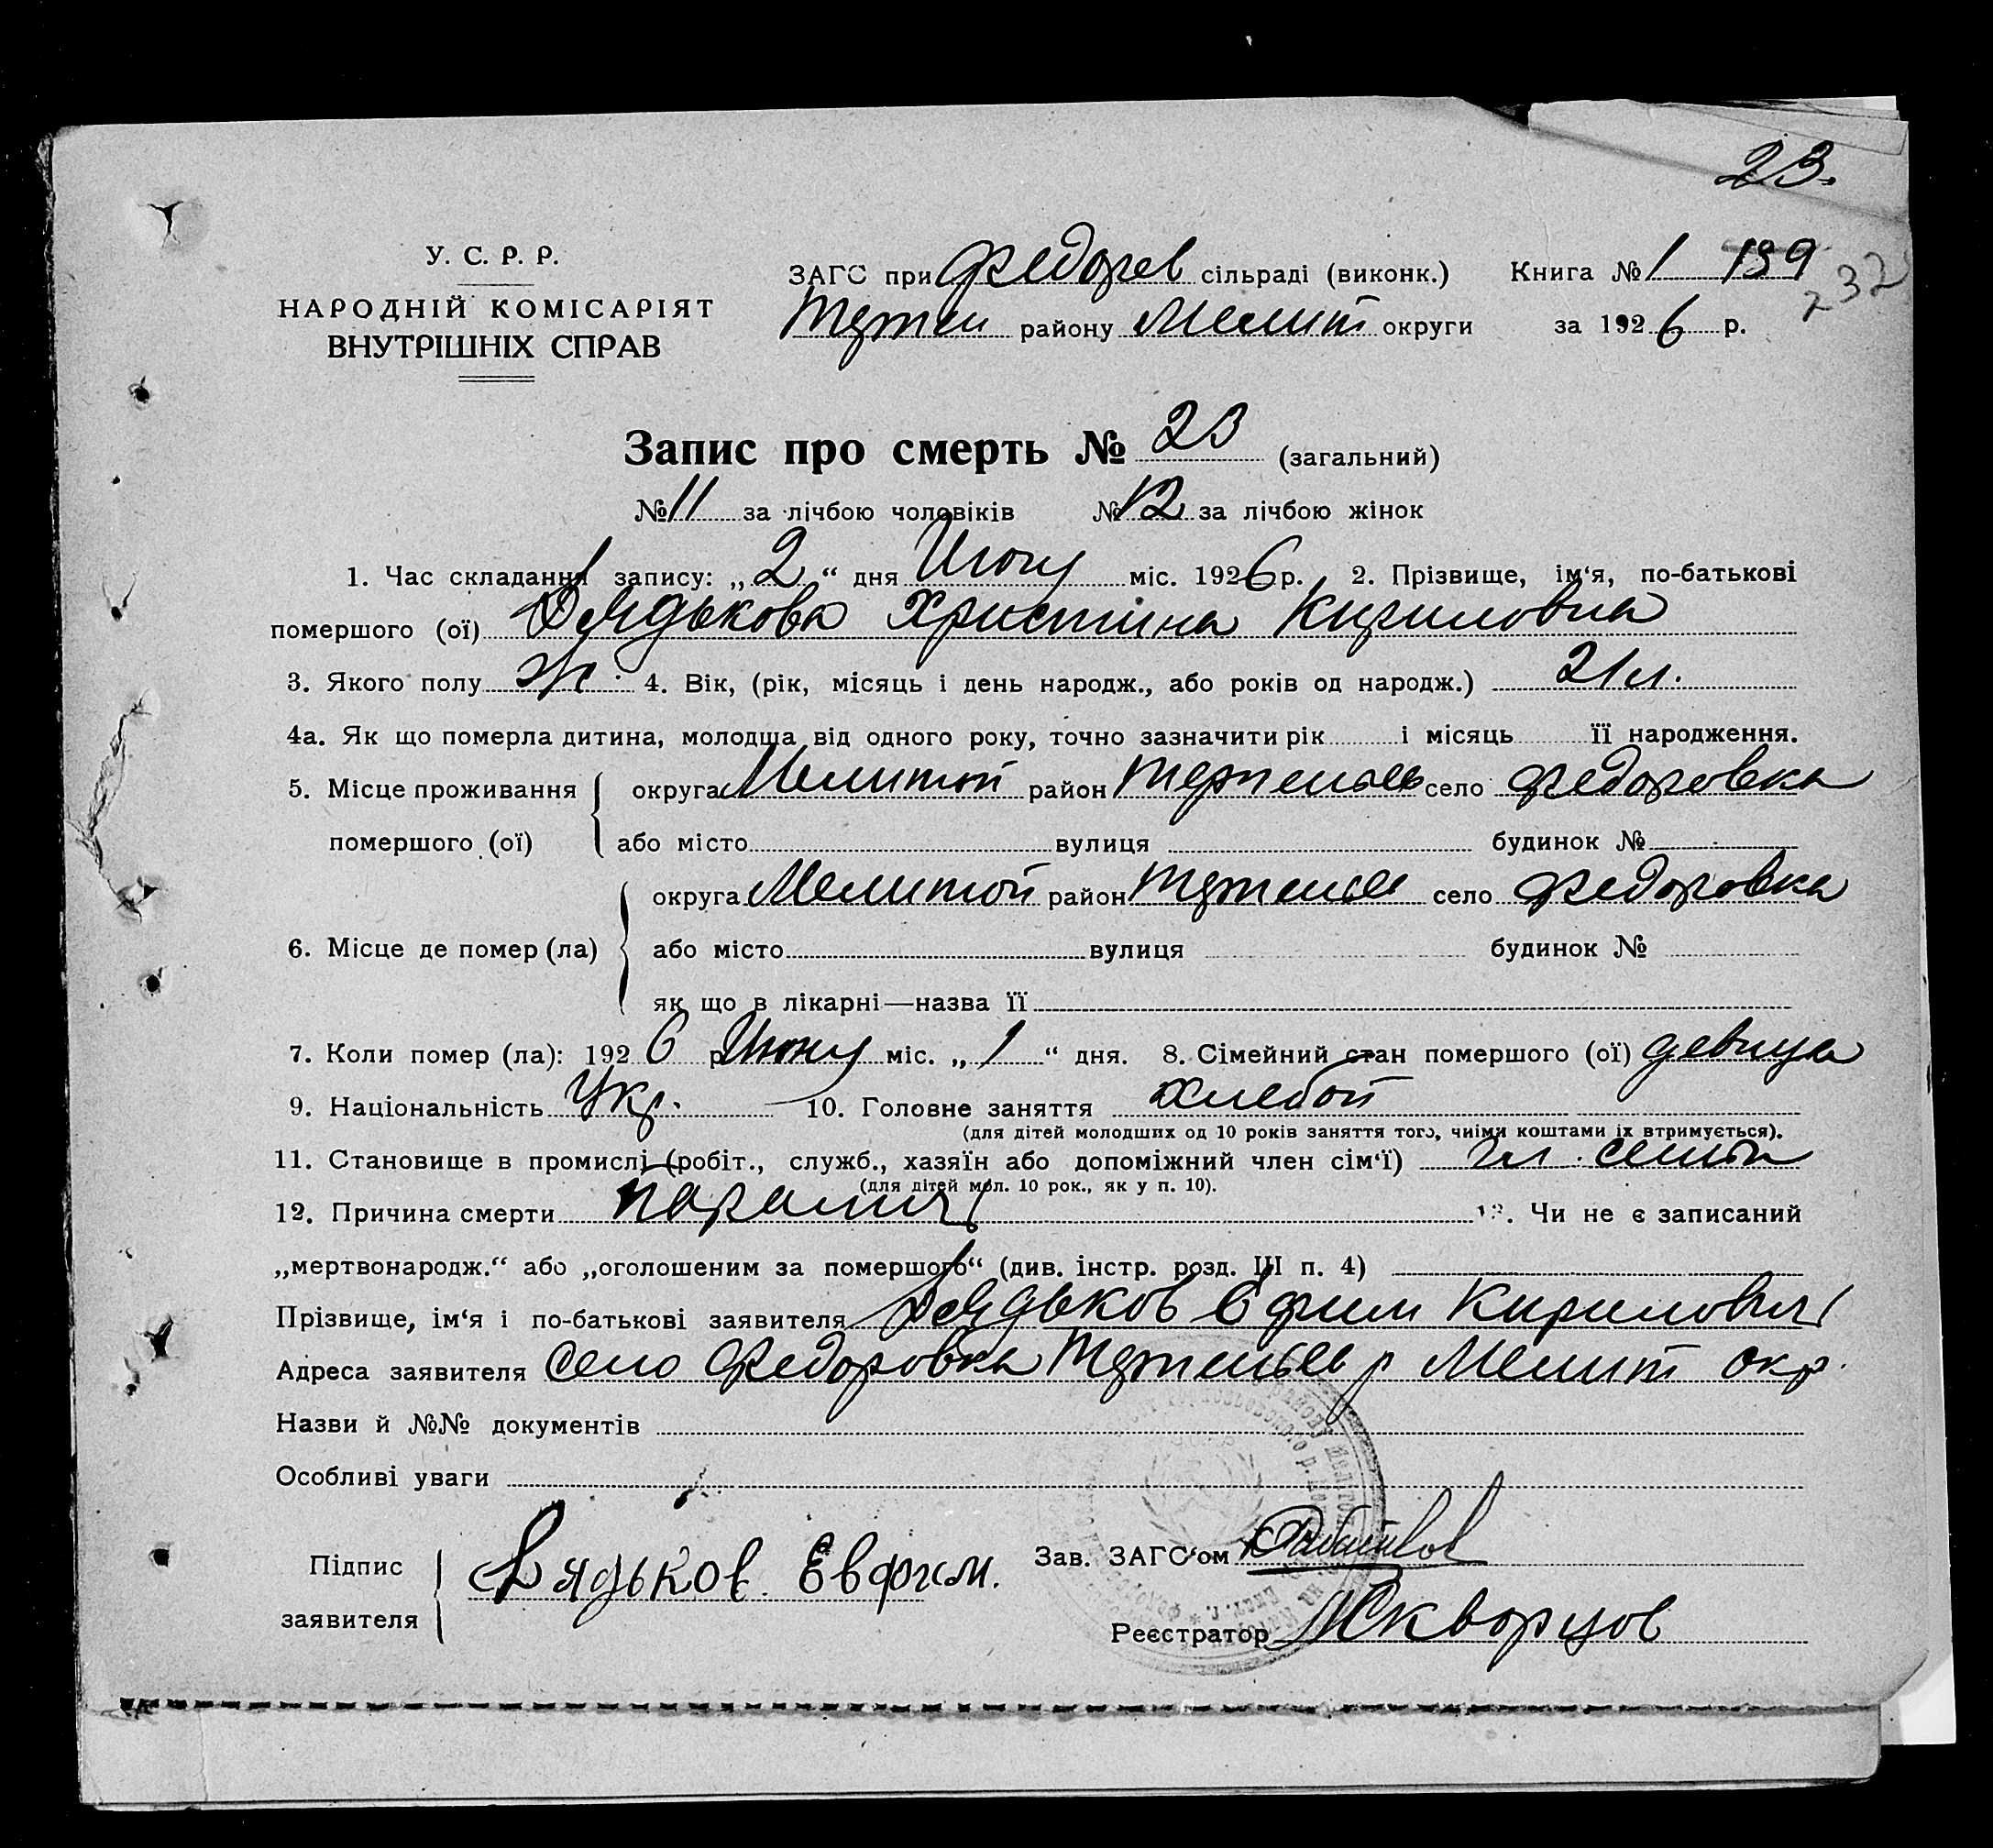 23.
У. С. Р. Р.
НАРОДНІЙ КОМІСАРІЯТ
ВНУТРІШНІХ СПРАВ
ЗАГС при Федоров сільраді (виконк.) Книга № 1 199
району Мелит округи за 1926 р. 232
Запис про смерть № 23 (загальний)
№ 11 за лічбою чоловіків № 12 за лічбою жінок
1. Час складання запису: „2“ дня Июну міс. 1926 р. 2. Прізвище, ім‘я, по-батькові
помершого (ої) Дядькова Христина Кириловна
3. Якого полу ж. 4. Вік, (рік, місяць і день народж., або років од народж.) 21 л.
4а. Як що померла дитина, молодша від одного року, точно зазначити рік і місяць її народження.
5. Місце проживання округа Мелитоп район село Федоровка
помершого (ої) або місто вулиця будинок №
округа Мелитоп район село Федоровка
6. Місце де помер (ла) або місто вулиця будинок №
як що в лікарні—назва її
7. Коли помер (ла): 1926 р Июну міс. „1“ дня. 8. Сімейний стан помершого (ої) девица
9. Національність Укр. 10. Головне заняття хлебоп
(для дітей молодших од 10 років заняття того, чиїми коштами їх втримується).
11. Становище в промислі (робіт., служб., хазяїн або допоміжний член сім‘ї) чл. семьи
(для дітей мол. 10 рок., як у п. 10).
12. Причина смерти паралич 13. Чи не є записаний
„мертвонародж.“ або „оголошеним за помершого“ (див. інстр. розд. III п. 4)
Прізвище, ім‘я і по-батькові заявителя Дядьков Ефим Кирилович
Адреса заявителя село Федоровка р Мелит окр.
Назви й №№ документів
Особливі уваги
Підпис заявителя Дядьков. Евфим.
Зав. ЗАГС‘ом
Реєстратор Скворцов